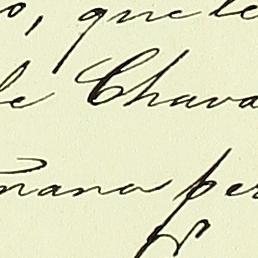 o, que le
le Chava
mana per